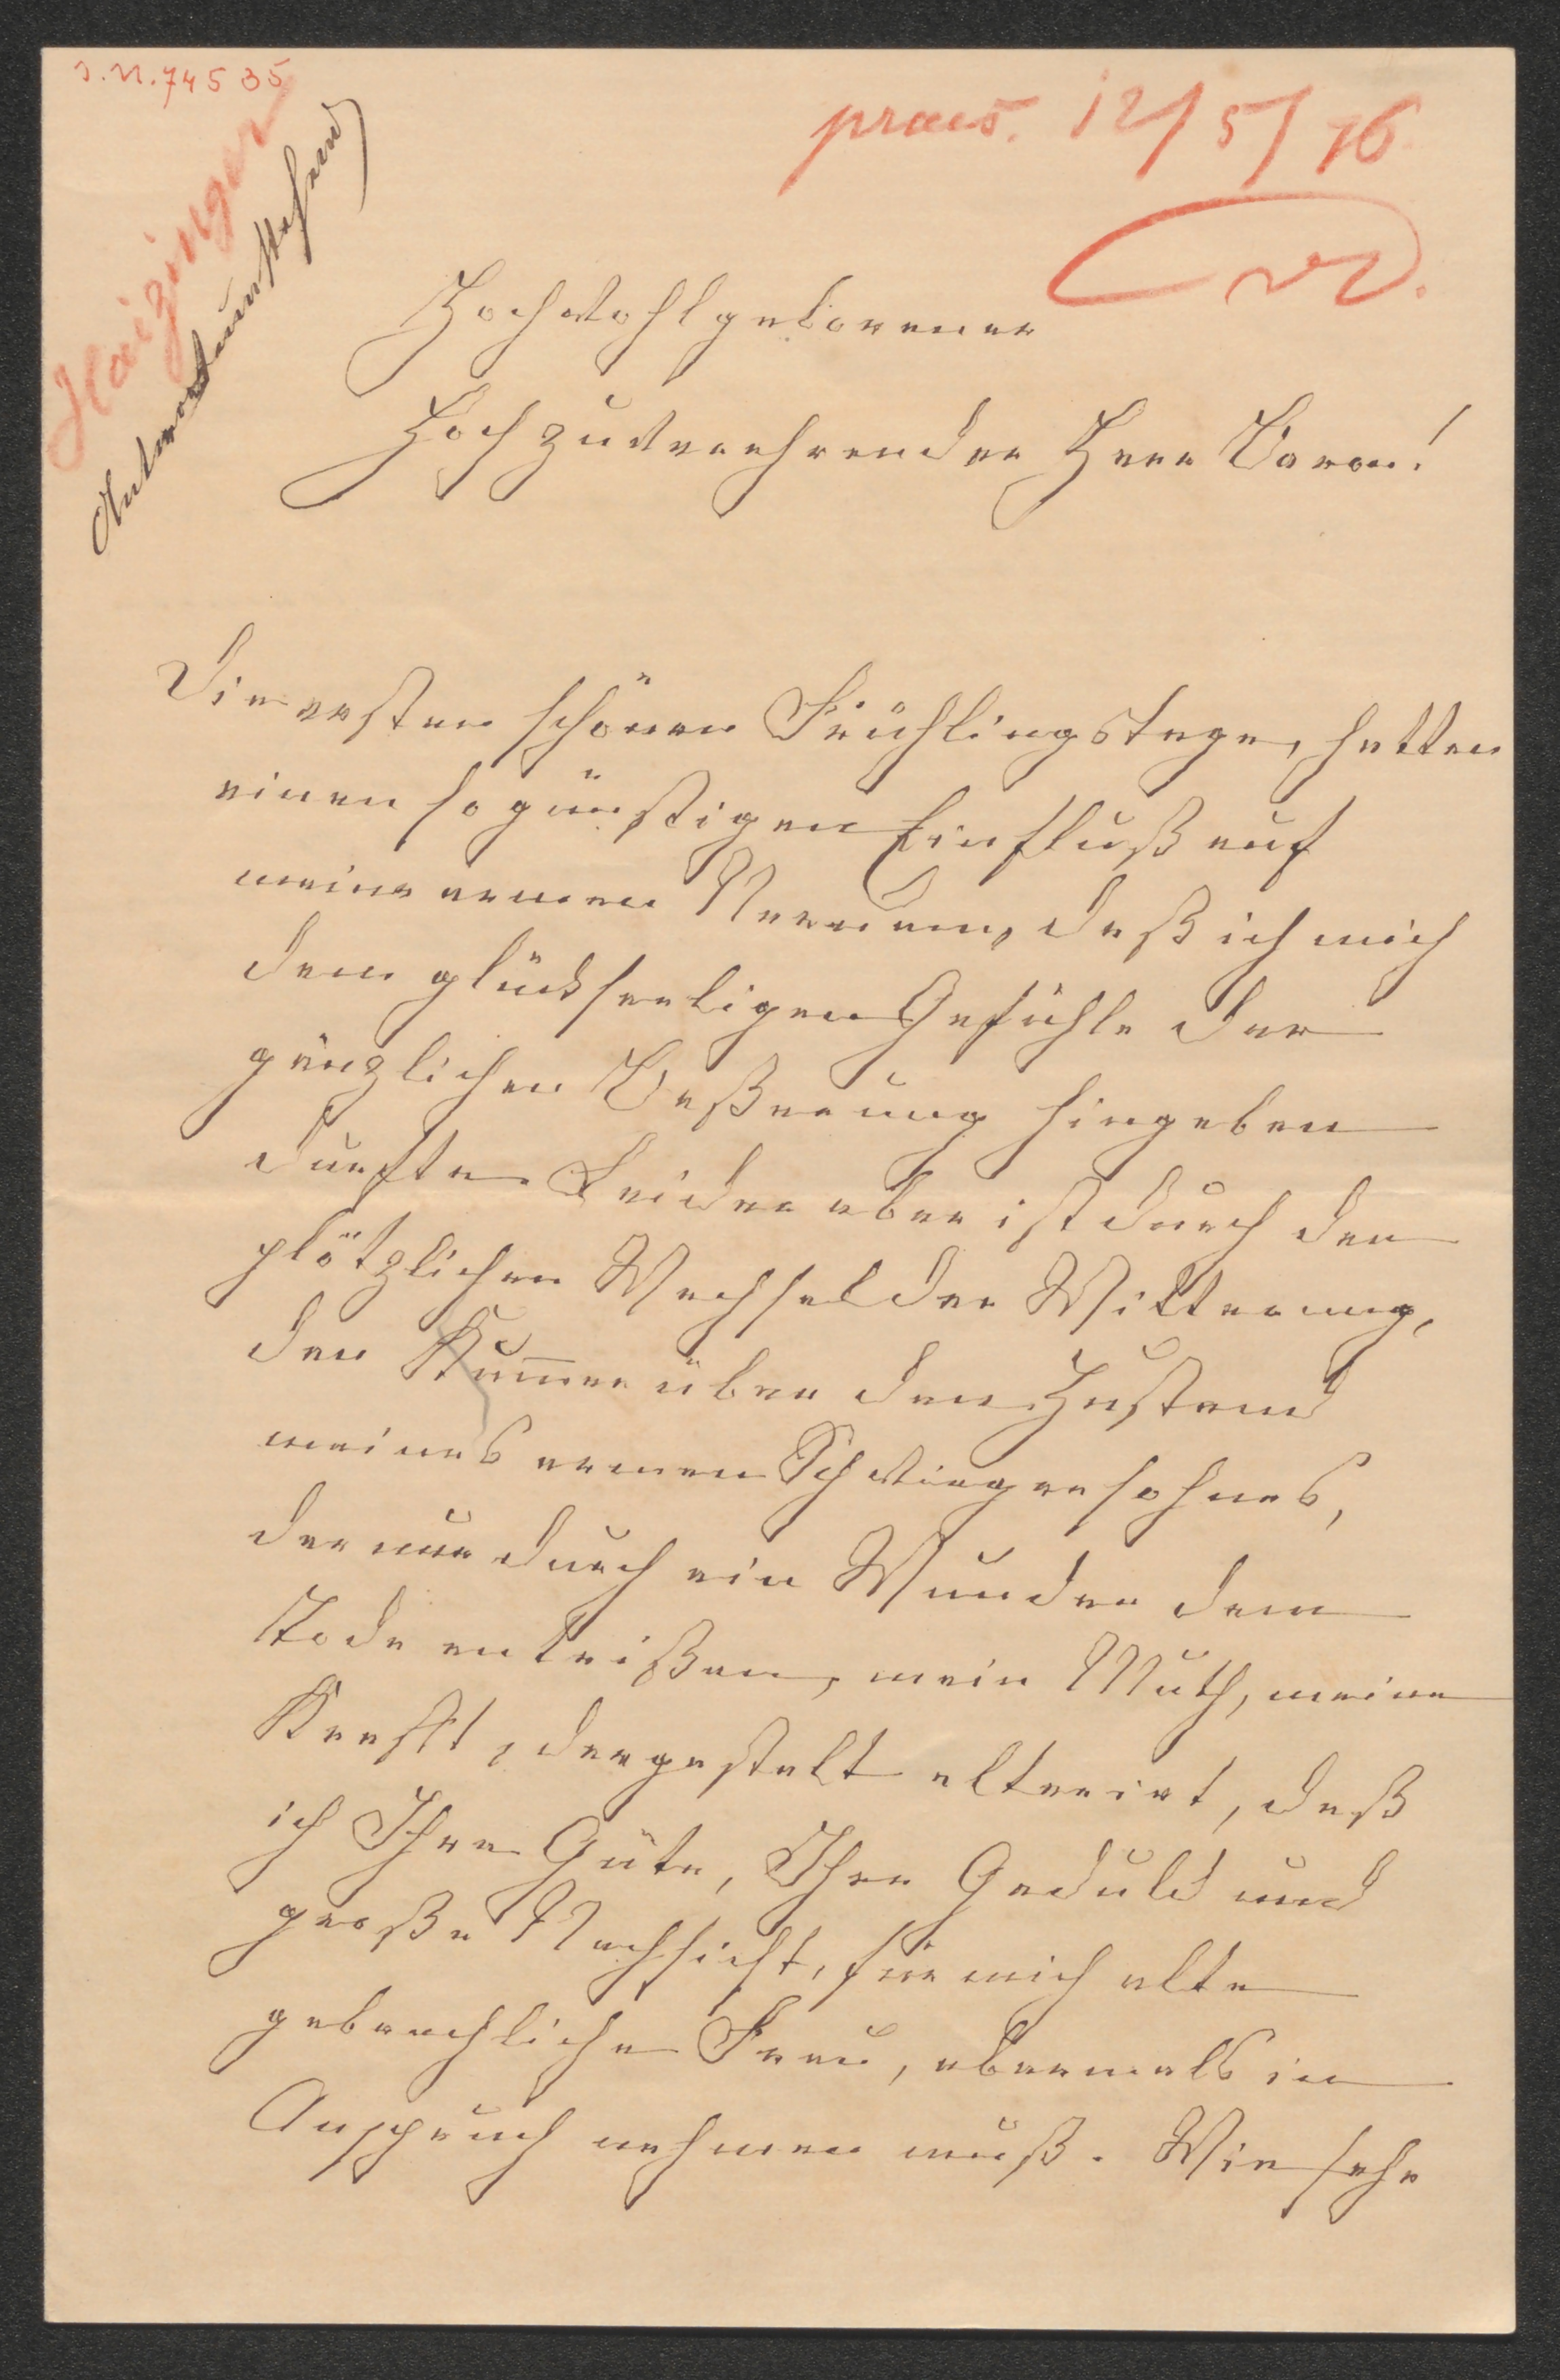 I.N. 74535
praes. 12/5/76
Haizinger
Antwort umstehend
Hochwohlgeborener
Hochzuverehrender Herr Baron!
Die ersten schönen Frühlingstage, hatten
einen so günstigen Einfluß auf
meine armen Nerven, daß ich mich
dem glückseeligen Gefühle der
gänzlichen Beßerung hingeben
durfte. Leider aber ist durch den
plötzlichen Wechsel der Witterung,
den Kum̄er über den Zustand
meines armen Schwiegersohnes,
der nur durch ein Wunder dem
Tode entrißen, mein Muth, meine
Kraft, dergestalt alterirt, daß
ich Ihre Güte, Ihre Geduld und
große Nachsicht, für mich alte
gebrechliche Frau, abermals in
Anspruch nehmen muß. Wie sehr